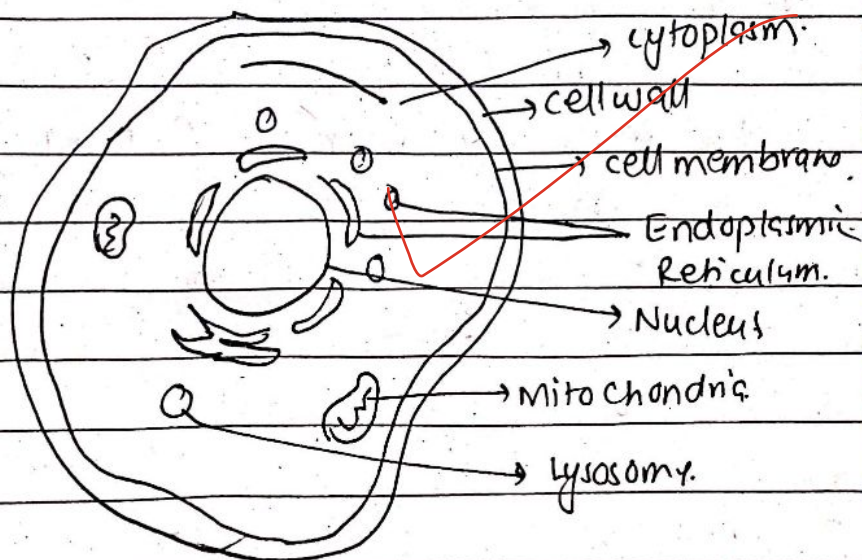 cytoplasm.
cell wall
cell membrane.
Endoplasmic
Reticulum.
Nucleus
Mitochondria
Lysosomy.